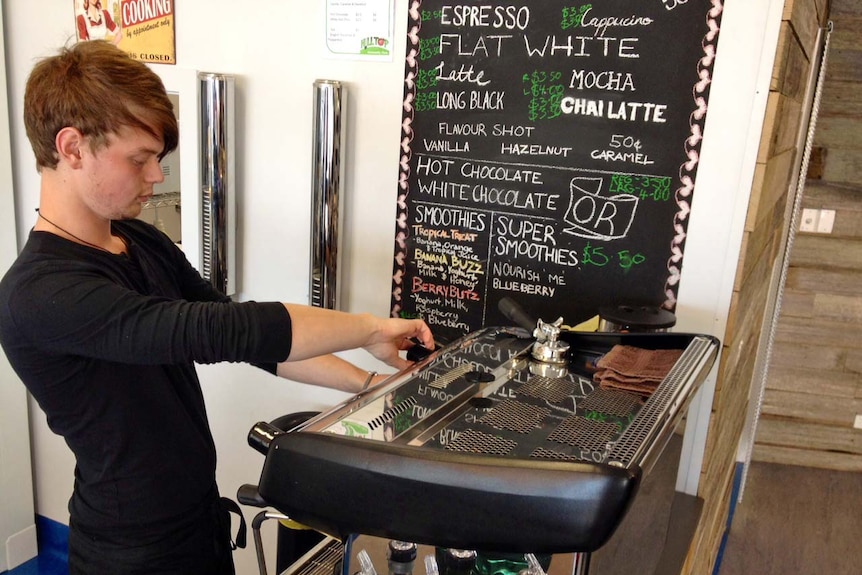 COOKING
by appointment only
IS CLOSED.
HILLTOP
50¢
ESPRESSO
$3.00
Cappucino
FLAT WHITE
Latte
R $3.50
MOCHA
LONG BLACK
L $4.00
CHAI LATTE
FLAVOUR SHOT 50¢
VANILLA HAZELNUT CARAMEL
HOT CHOCOLATE
REG - 3.50
WHITE CHOCOLATE
LRG - 4.00
OR
SMOOTHIES
TROPICAL TREAT
- Banana, Orange
& Tropical Juice
BANANA BUZZ
- Banana, Yoghurt
Milk & Honey
BERRY BLITZ
- Yoghurt, Milk,
Raspberry
& Blueberry
SUPER
SMOOTHIES
$5.50
NOURISH 'ME
BLUEBERRY